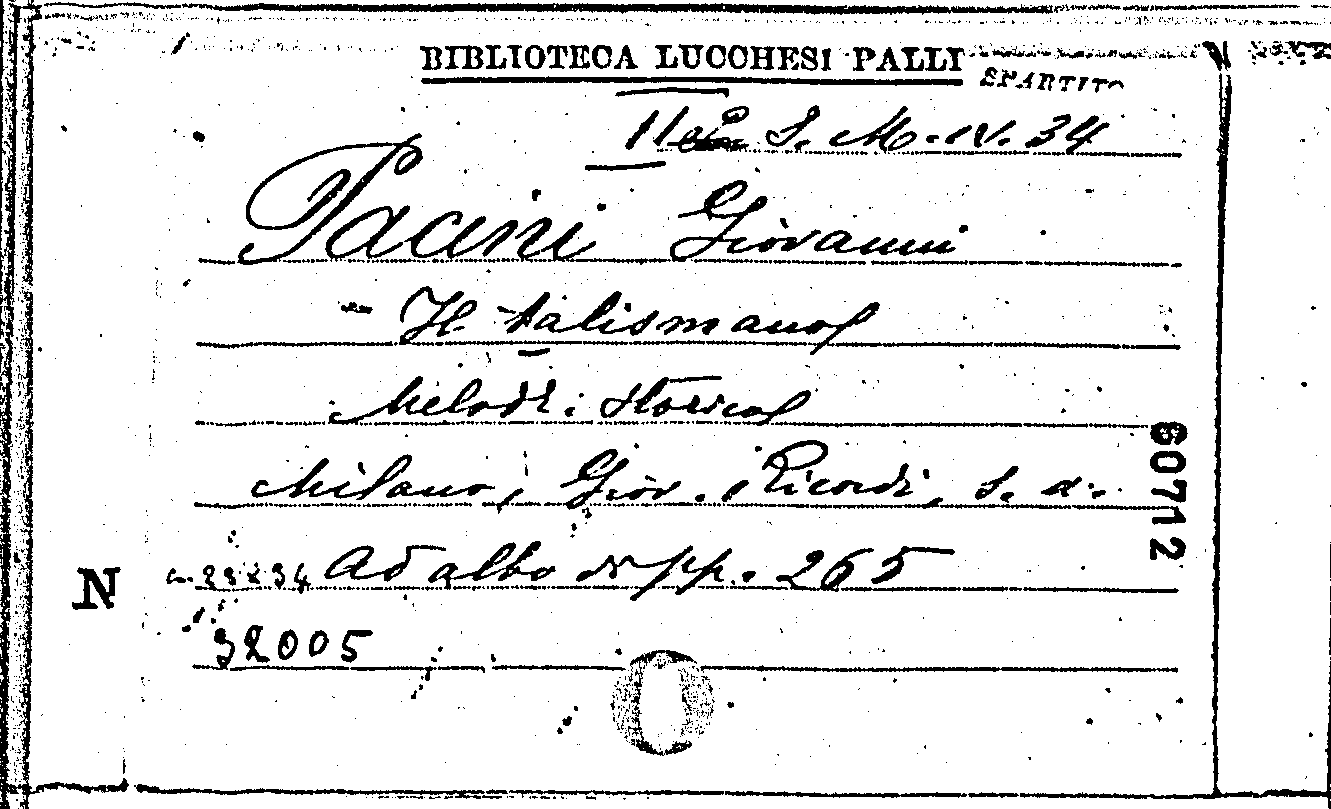 BIBLIOTECA LUCCHESI PALLI
SPARTITO
S. M. IV. 34
Pacini Giovanni
Il talismano
Melodr. storico
Milano, Giov. Ricordi, s. a.
60712
N
c. 23 x 34 Ad albo di pp. 265
32005